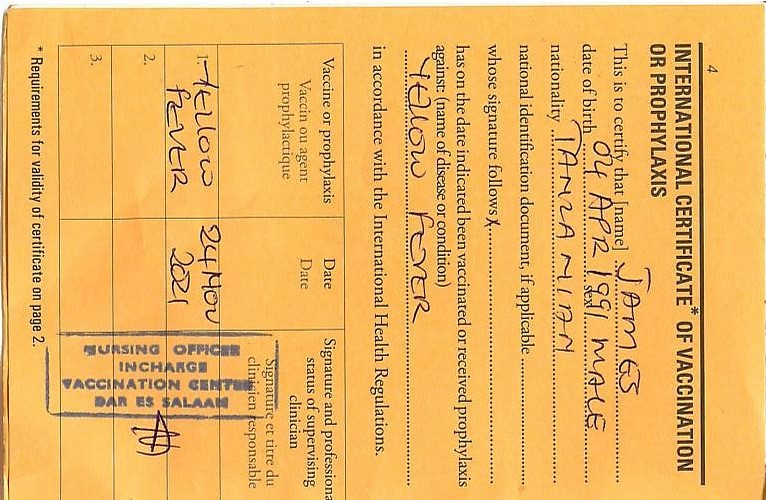 4
INTERNATIONAL CERTIFICATE* OF VACCINATION
OR PROPHYLAXIS
This is to certify that [name] JAMES
date of birth 04 APR 1991 sex MALE
nationality TANZANIAN
national identification document, if applicable
whose signature follows X
has on the date indicated been vaccinated or received prophylaxis
against: (name of disease or condition)
YELLOW FEVER
in accordance with the International Health Regulations.
Vaccine or prophylaxis
Vaccin ou agent
prophylactique
Date
Date
Signature and professional
status of supervising
clinician
Signature et titre du
clinicien responsable
1. YELLOW
FEVER
24 NOV
2021
2.
3.
NURSING OFFICER
INCHARGE
VACCINATION CENTRE
DAR ES SALAAM
* Requirements for validity of certificate on page 2.